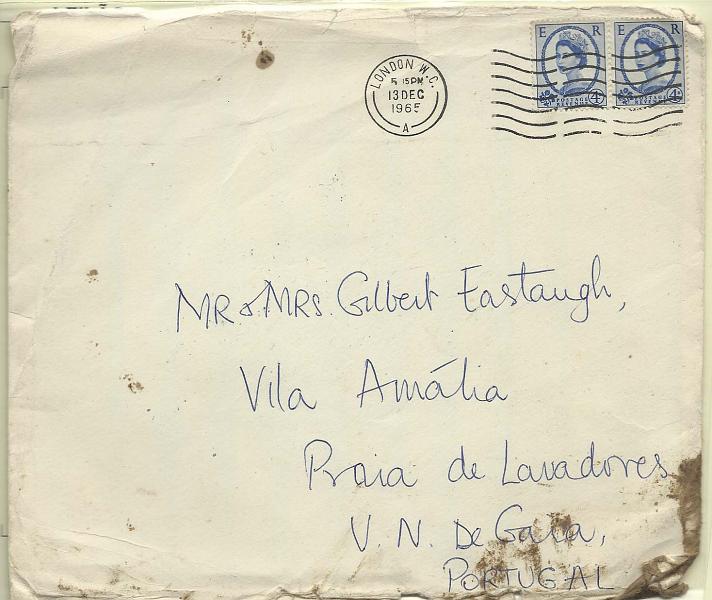 E R E R
LONDON W.C.
5 15PM
13 DEC
1965
A
POSTAGE POSTAGE
4D 4D
MR & MRS. Gilbert Eastaugh,
Vila Amália
Praia de Lavadores
V. N. De Gaia,
PORTUGAL